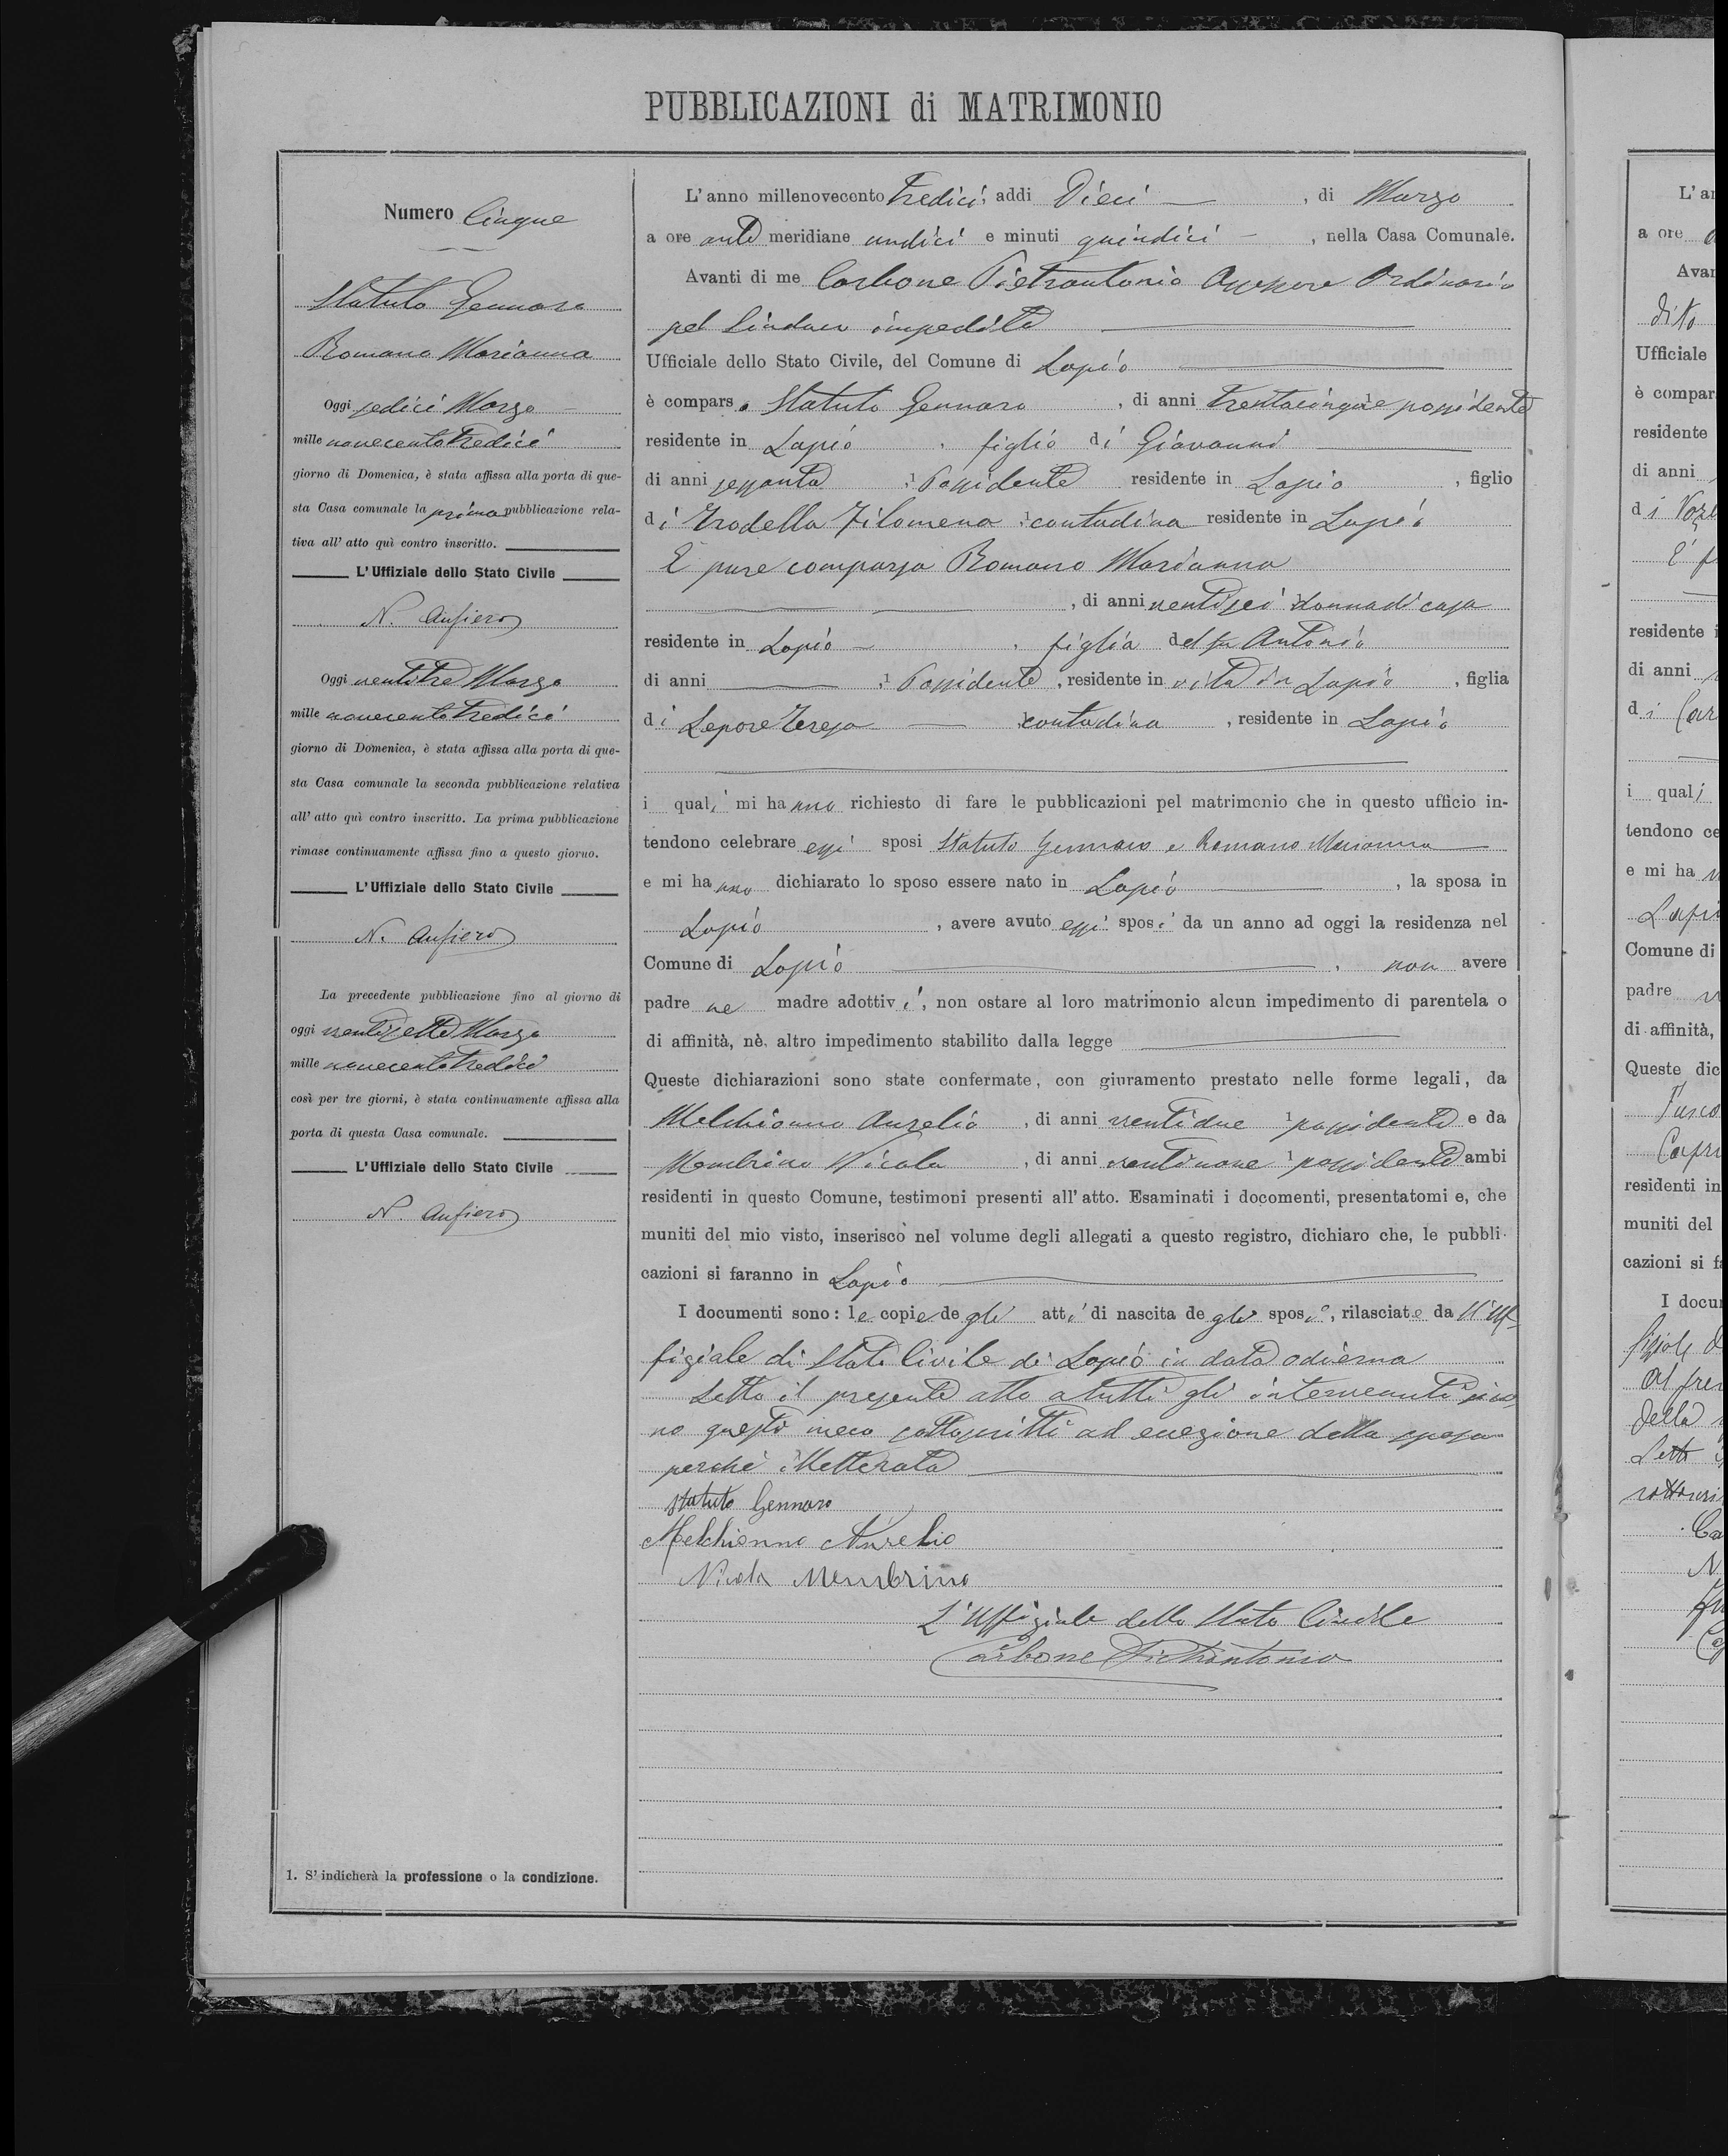 PUBBLICAZIONI di MATRIMONIO
Numero Cinque
Statuto Gennaro
Romano Marianna
Oggi sedici Marzo
mille novecentotredici
giorno di Domenica, è stata affissa alla porta di que-
sta Casa comunale la prima pubblicazione rela-
tiva all' atto quì contro inscritto.
L'Uffiziale dello Stato Civile
N. Aufiero
Oggi ventitre Marzo
mille novecentotredici
giorno di Domenica, è stata affissa alla porta di que-
sta Casa comunale la seconda pubblicazione relativa
all' atto quì contro inscritto. La prima pubblicazione
rimase continuamente affissa fino a questo giorno.
L'Uffiziale dello Stato Civile
N. Aufiero
La precedente pubblicazione fino al giorno di
oggi ventisette Marzo
mille novecentotredici
così per tre giorni, è stata continuamente affissa alla
porta di questa Casa comunale.
L'Uffiziale dello Stato Civile
N. Aufiero
1. S' indicherà la professione o la condizione.
L' anno millenovecento tredici, addi Dieci, di Marzo
a ore ante meridiane undici e minuti quindici, nella Casa Comunale.
Avanti di me Carbone Pietrantonio Assessore Ordinario
pel Sindaco impedito
Ufficiale dello Stato Civile, del Comune di Lapio
è compars o Statuto Gennaro, di anni trentacinque possidente
residente in Lapio, figlio di Giovanni
di anni sessanta, 1 Possidente residente in Lapio, figlio
di Trodella Filomena 1 contadina residente in Lapio
E pure comparsa Romano Marianna
, di anni ventisei 1 donna di casa
residente in Lapio, figlia del fu Antonio
di anni , 1 Possidente, residente in vita in Lapio, figlia
di Lepore Teresa 1 contadina, residente in Lapio
i quali mi hanno richiesto di fare le pubblicazioni pel matrimonio che in questo ufficio in-
tendono celebrare essi sposi Statuto Gennaro e Romano Marianna
e mi hanno dichiarato lo sposo essere nato in Lapio, la sposa in
Lapio, avere avuto essi sposi da un anno ad oggi la residenza nel
Comune di Lapio, non avere
padre ne madre adottivi, non ostare al loro matrimonio alcun impedimento di parentela o
di affinità, nè altro impedimento stabilito dalla legge
Queste dichiarazioni sono state confermate, con giuramento prestato nelle forme legali, da
Melchionno Aurelio, di anni ventidue 1 possidente e da
Membrino Nicola, di anni ventinove 1 possidente ambi
residenti in questo Comune, testimoni presenti all' atto. Esaminati i documenti, presentatomi e, che
muniti del mio visto, inserisco nel volume degli allegati a questo registro, dichiaro che, le pubbli-
cazioni si faranno in Lapio
I documenti sono: le copie degli atti di nascita degli sposi, rilasciate dall'Uf-
fiziale di Stato Civile di Lapio in data odierna
Letto il presente atto a tutti gli intervenuti
no questi meco sottoscritti ad eccezione della sposa
perchè illetterata
Statuto Gennaro
Melchionno Aurelio
Nicola Membrino
L'Uffiziale dello Stato Civile
Carbone Pietrantonio
L' an
a ore
Avan
Ufficiale
è compar
residente
di anni
di
residente i
di anni
di Car
i quali
tendono ce
e mi ha
Lapi
Comune di
padre
di affinità,
Queste dic
residenti in
muniti del
cazioni si f
I docu